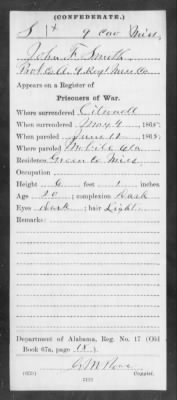 (CONFEDERATE.)
S 9 Cav Miss.
John F. Smith
Pvt Co A. 9 Regt Miss. Ca
Appears on a Register of
Prisoners of War.
Where surrendered Citronell
When surrendered May 4, 1865.
When paroled June 12, 1865.
Where paroled Mobile Ala
Residence Green Co Miss.
Occupation
Height 6 feet 1 inches
Age 20; complexion Dark
Eyes Dark; hair Light
Remarks:
Department of Alabama, Reg. No. 17 (Old
Book 67a, page 18)
Copyist.